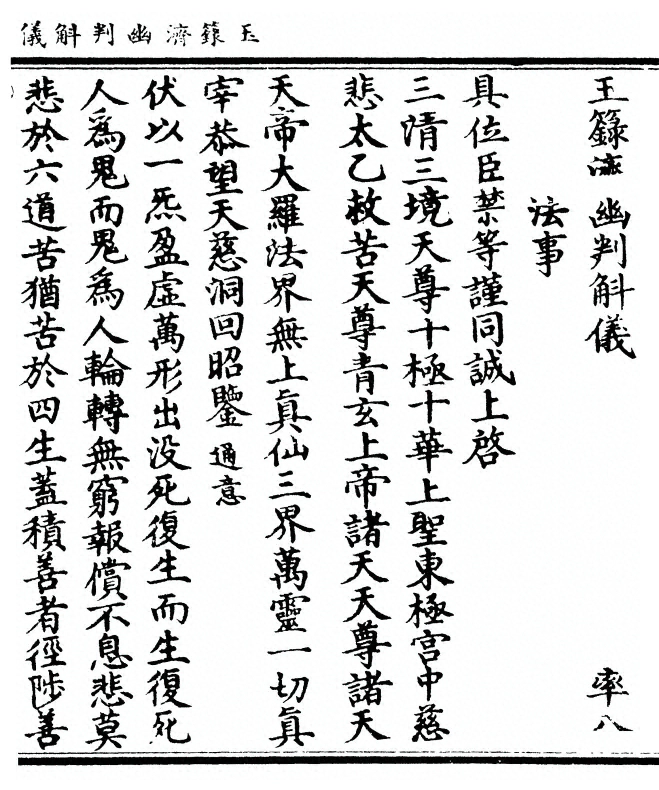 玉籙濟幽判斛儀
玉籙濟幽判斛儀 率八
法事
具位臣禁等謹同誠上啓
三清三境天尊十極十華上聖東極宫中慈
悲太乙救苦天尊青玄上帝諸天天尊諸天
天帝大羅法界無上眞仙三界萬靈一切眞
宰恭望天慈洞回昭鑒 通意
伏以一炁盈虛萬形出没死復生而生復死
人爲鬼而鬼爲人輪轉無窮報償不息悲莫
悲於六道苦猶苦於四生蓋積善者徑陟善